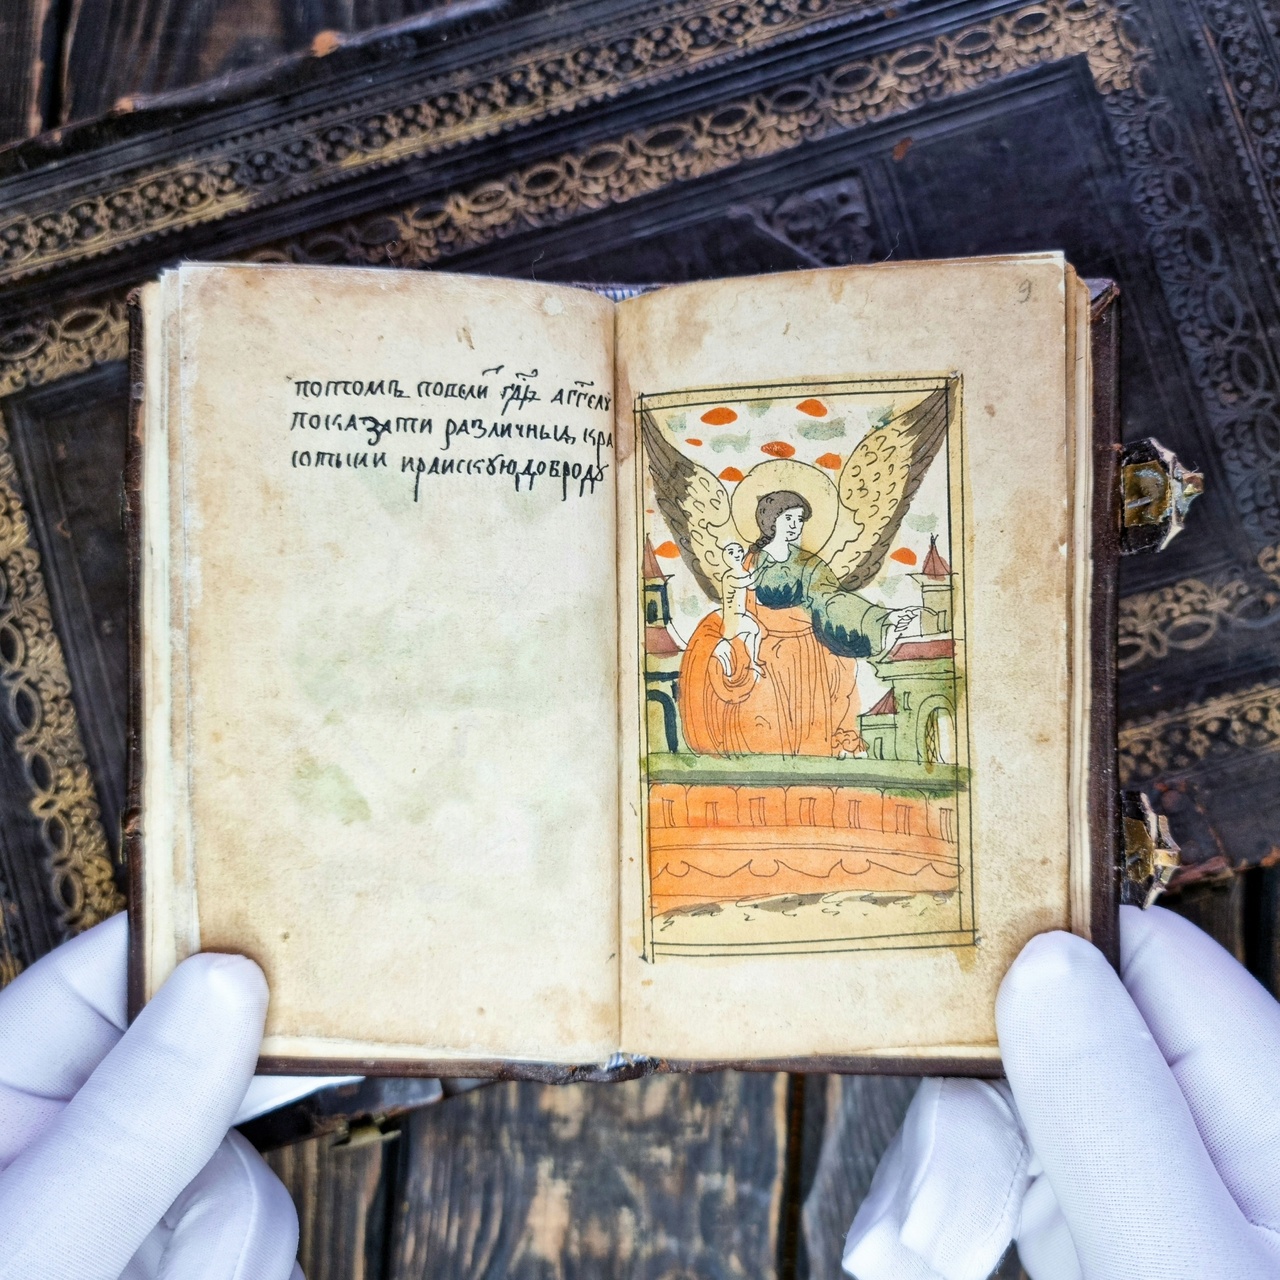 потомъ повели гдⷭ҇ь аггелу
показати различныꙗ кра
соты и и раискую доброду
9